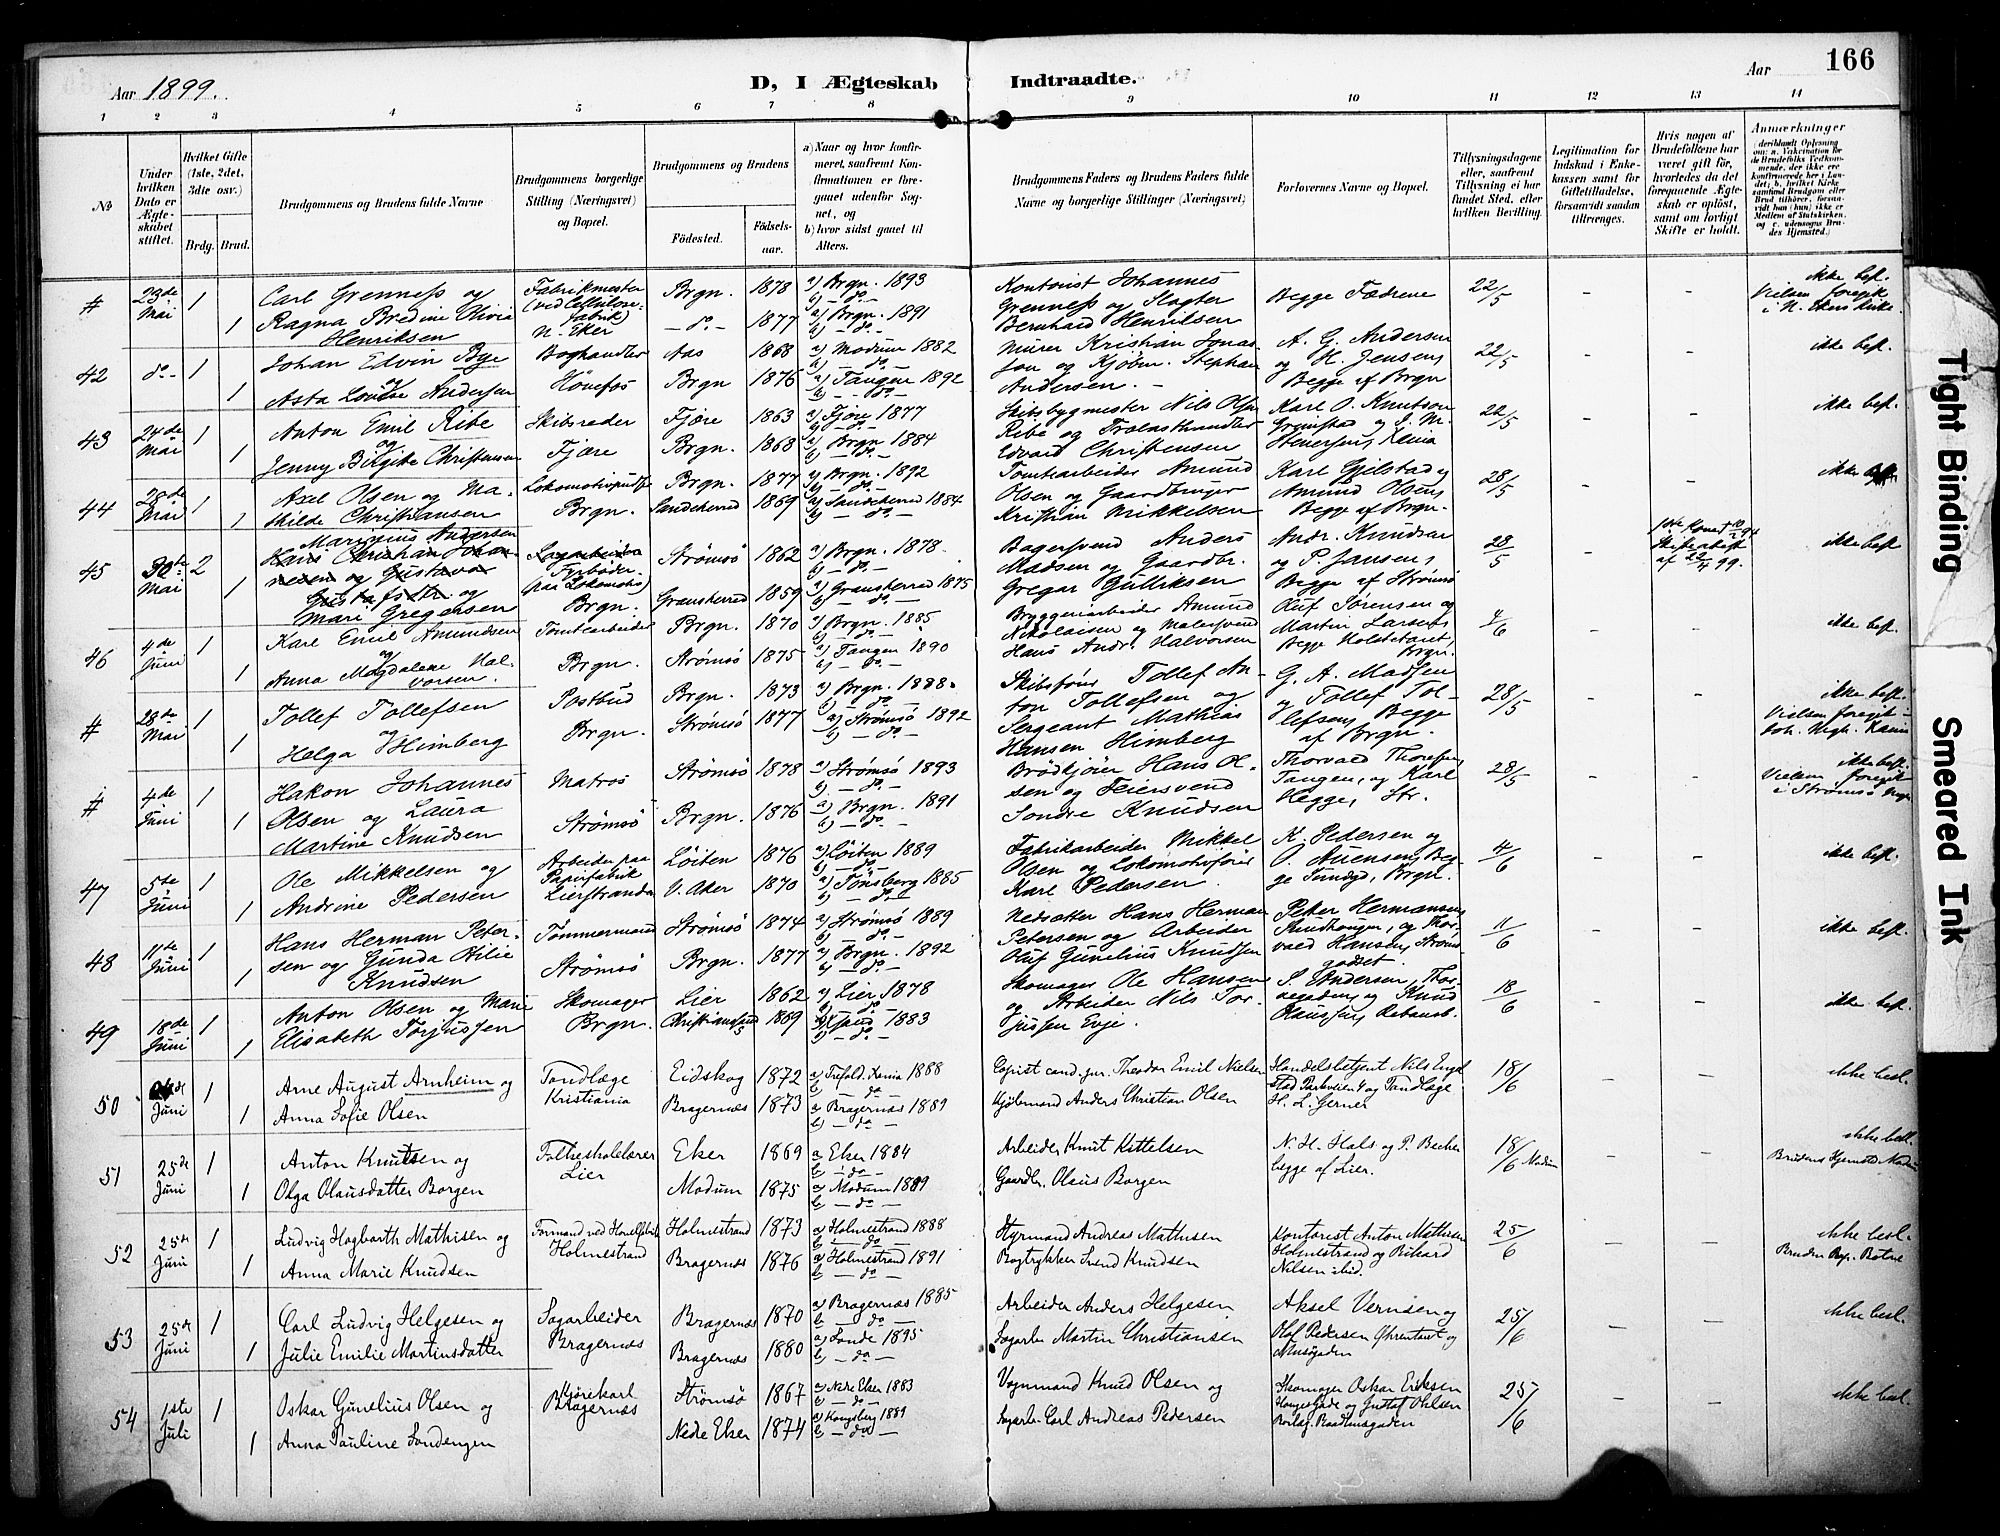 166
Aar 1899.
D, I Ægteskab Indtraadte.
Aar
1 2 3 4 5 6 7 8 9 10 11 12 13 14
No
Under hvilken Dato er Ægteskabet stiftet.
Hvilket Gifte (1ste, 2det, 3die osv.)
Brdg. Brud.
Brudgommens og Brudens fulde Navne
Brudgommens borgerlige Stilling (Næringsvei) og Bopæl.
Brudgommens og Brudens
Fødested.
Fødselsaar.
a) Naar og hvor konfirmeret, saafremt Konfirmationen er foregaaet udenfor Sognet, og
b) hvor sidst gaaet til Alters.
Brudgommens Faders og Brudens Faders fulde Navne og borgerlige Stillinger (Næringsvei)
Forlovernes Navne og Bopæl.
Tillysningsdagene eller, saafremt Tillysning ei har fundet Sted, efter hvilken Bevilling.
Legitimation for Indskud i Enkekassen samt for Giftetilladelse, forsaavidt saadan tiltrænges.
Hvis nogen af Brudefolkene har været gift før, hvorledes da det foregaaende Ægteskab er opløst, samt om lovligt Skifte er holdt.
Anmærkninger
# 23de Mai 1 Carl Grenness og Fabrikmester (ved Cellulosefabrik) Brgn. 1878 a) Brgn. 1893 b) - do - Kontorist Johannes Grenness og Slagter Begge Fædrene 22/5 - - ikke besl. Vielsen foregik i N. Ekers Kirke
1 Ragna Bredine Olivia Henriksen N. Eker - do - 1877 a) Brgn. 1891 b) - do - Bernhard Henriksen
42 do - 1 Johan Edvin Bye Boghandler Aas 1868 a) Modum 1882 b) - do - Murer Kristian Jonasson og Kjøbm. Stephan A. G. Andersen og H. Jensen, 22/5 - - ikke besl.
1 og Asta Lovise Andersen Hönefos Brgn 1876 a) Tangen 1892 b) - do - Andersen. - Begge af Brgn
43 24de Mai 1 Anton Emil Ribe Skibsreder Fjære 1863 a) Fjære 1877 b) - do - Skibsbygmester Nils Olsen Ribe og Trælasthandler Karl O. Knutson Grimstad og S. M. 22/5 - - ikke besl.
1 og Jenny Birgitte Christensen Fjære Brgn. 1868 a) Brgn 1884 b) - do - Edvard Christensen
44 28de Mai 1 Axel Olsen og Ma- Lokomotivpudser Brgn. 1877 a) Brgn. 1892 b) - do - Tomtearbeider Amund Olsen og Gaardbruger Karl Gjelstad og Amund Olsen, 28/5 - - ikke besl.
1 thilde Christiansen Brgn. Sandeherred 1869 a) Sandeherred 1884 b) - do - Kristian Mikkelsen Begge af Brgn.
45 30te Mai 2 Marinius Andersen Fyrbøder (paa Lokomotiv) Strömsö 1862 a) Brgn. 1878. b) - do - Bagersvend Anders Madsen og Gaardbr. Andr. Knudsen og P. Jansen, 28/5 - Skifteattest af 22/4 99. ikke besl
1 og Mari Gregersen Brgn. Gransherred 1859 a) Gransherred 1875 b) - do - Gregar Gulliksen Begge af Strömsö
46 4de Juni 1 Karl Emil Amundsen Tomtearbeider Brgn. 1870 a) Brgn. 1885 b) - do - Bryggeriarbeider Amund Nikolaisen og Malersvend Oluf Sörensen og Martin Larsen, 4/6 - - ikke besl.
1 og Anna Magdalene Halvorsen. Brgn. Strömsö 1875 a) Tangen 1890 b) - do - Hans Andr. Halvorsen Begge Brgn.
# 28de Mai 1 Tollef Tollefsen Postbud Brgn. 1873 a) Brgn. 1888. b) - do - Skibsförer Tollef Anton Tollefsen og G. A. Madsen og Tollef Tol- 28/5 - - ikke besl. Vielsen foregik
1 og Helga Himberg Brgn. Strömsö 1877 a) Strömsö 1892 b) - do - Sergeant Mathias Hansen Himberg lefsen, Begge af Brgn.
# 4de Juni 1 Hakon Johannes Matros Strömsö 1878 a) Strömsö 1893 b) - do - Brödkjører Hans Olsen og Feiersvend Thorvald Thoresen, Tangen, og Karl 28/5 - - ikke besl. Vielsen foregik i Strömsö
1 Olsen og Laura Martine Knudsen Strömsö Brgn. 1876 a) Brgn. 1891 b) - do - Sondre Knudsen Hegge, Str.
47 5te Juni 1 Ole Mikkelsen og Arbeider paa Papirfabrik Löiten 1876 a) Löiten 1889 b) - do - Fabrikarbeider Mikkel Olsen og Lokomotivförer K. Pedersen og 4/6 - - ikke besl.
1 Andrine Pedersen Lierstranden V. Aker 1870 a) Tönsberg 1885 b) - do - Karl Pedersen. Brgn.
48 11te Juni 1 Hans Herman Peter- Tömmermand Strömsö 1874 a) Strömsö 1889 b) - do - Hans Herman Petersen og Arbeider Peter Hermansen, og Thor- 11/6 - - ikke besl.
1 sen og Gunda Otilie Knudsen Strömsö Brgn. 1877 a) Brgn. 1892 b) - do - Oluf Gunelius Knudsen vald Hansen, Strömsgodset.
49 18de Juni 1 Anton Olsen og Marie Skomager Lier 1862 a) Lier 1878 b) - do - Skomager Ole Hansen og Arbeider Nils Tor- S. Andersen, 18/6 - - ikke besl.
1 Elisabeth Torjussen Brgn. Christianssand 1869 1883 b) - do - jussen Evje. Knud
50 Juni 1 Arne August Arnheim og Tandlæge Eidskog 1872 a) Trefold. Kania 1888 b - do - Copist cand. jur. Theodor Emil Nielsen Handelsbetjent Nils Engstad Parkveien 4 og Tandlæge 18/6 - - ikke besl.
1 Anna Sofie Olsen Kristiania Bragernæs 1873 a Bragernæs 1889 b - do - Kjöbmand Anders Christian Olsen H. L. Gerner
51 25de Juni 1 Anton Knutsen og Folkeskolelærer Eker 1869 a Eker 1884 b - do - Arbeider Knut Kittelsen N. H. Hals og P. Becker 18/6 Modum - - ikke besl. Brudens Hjemsted Modum
1 Olga Olausdatter Borgen Lier Modum 1875 a) Modum 1889 b - do Gaardbr. Olaus Borgen begge af Lier.
52 25de Juni 1 Ludvig Hagbarth Mathisen og Formand ved Holmestrand 1873 a) Holmestrand 1888 b - do - Styrmand Andreas Mathisen Kontorist Anton Mathisen Holmestrand og Rikard 25/6 - - ikke besl.
1 Anna Marie Knudsen Holmestrand Bragernæs 1876 a) Holmestrand 1891 b - do - Bogtrykker Svend Knudsen Nilsen ibid. Bruden Bop. Botne
53 25de Juni 1 Carl Ludvig Helgesen og Sagarbeider Bragernæs 1870 a) Bragernæs 1885 b) - do - Arbeider Anders Helgesen Aksel Vernsen og 25/6 - - ikke besl.
1 Julie Emilie Martinsdatter Bragernæs Bragernæs 1880 a) Sande 1895 b) - do - Sagarbr Martin Christiansen Olaf Pedersen Øhrentæt og
54 1ste Juli 1 Oskar Gunelius Olsen og Kjørekarl Strömsö 1867 a) Nedre Eker 1883 b - do - Vognmand Knud Olsen og Skomager Oskar Eriksen Haugesgade og Gustaf Ohlsen 25/6 - - ikke besl.
1 Anna Pauline Sondengen Bragernæs Nedre Eker 1874 a) Kongsberg 1889 b - do - Sagarbr Carl Andreas Pedersen Raadhusgaden
Tight Binding
Smeared Ink